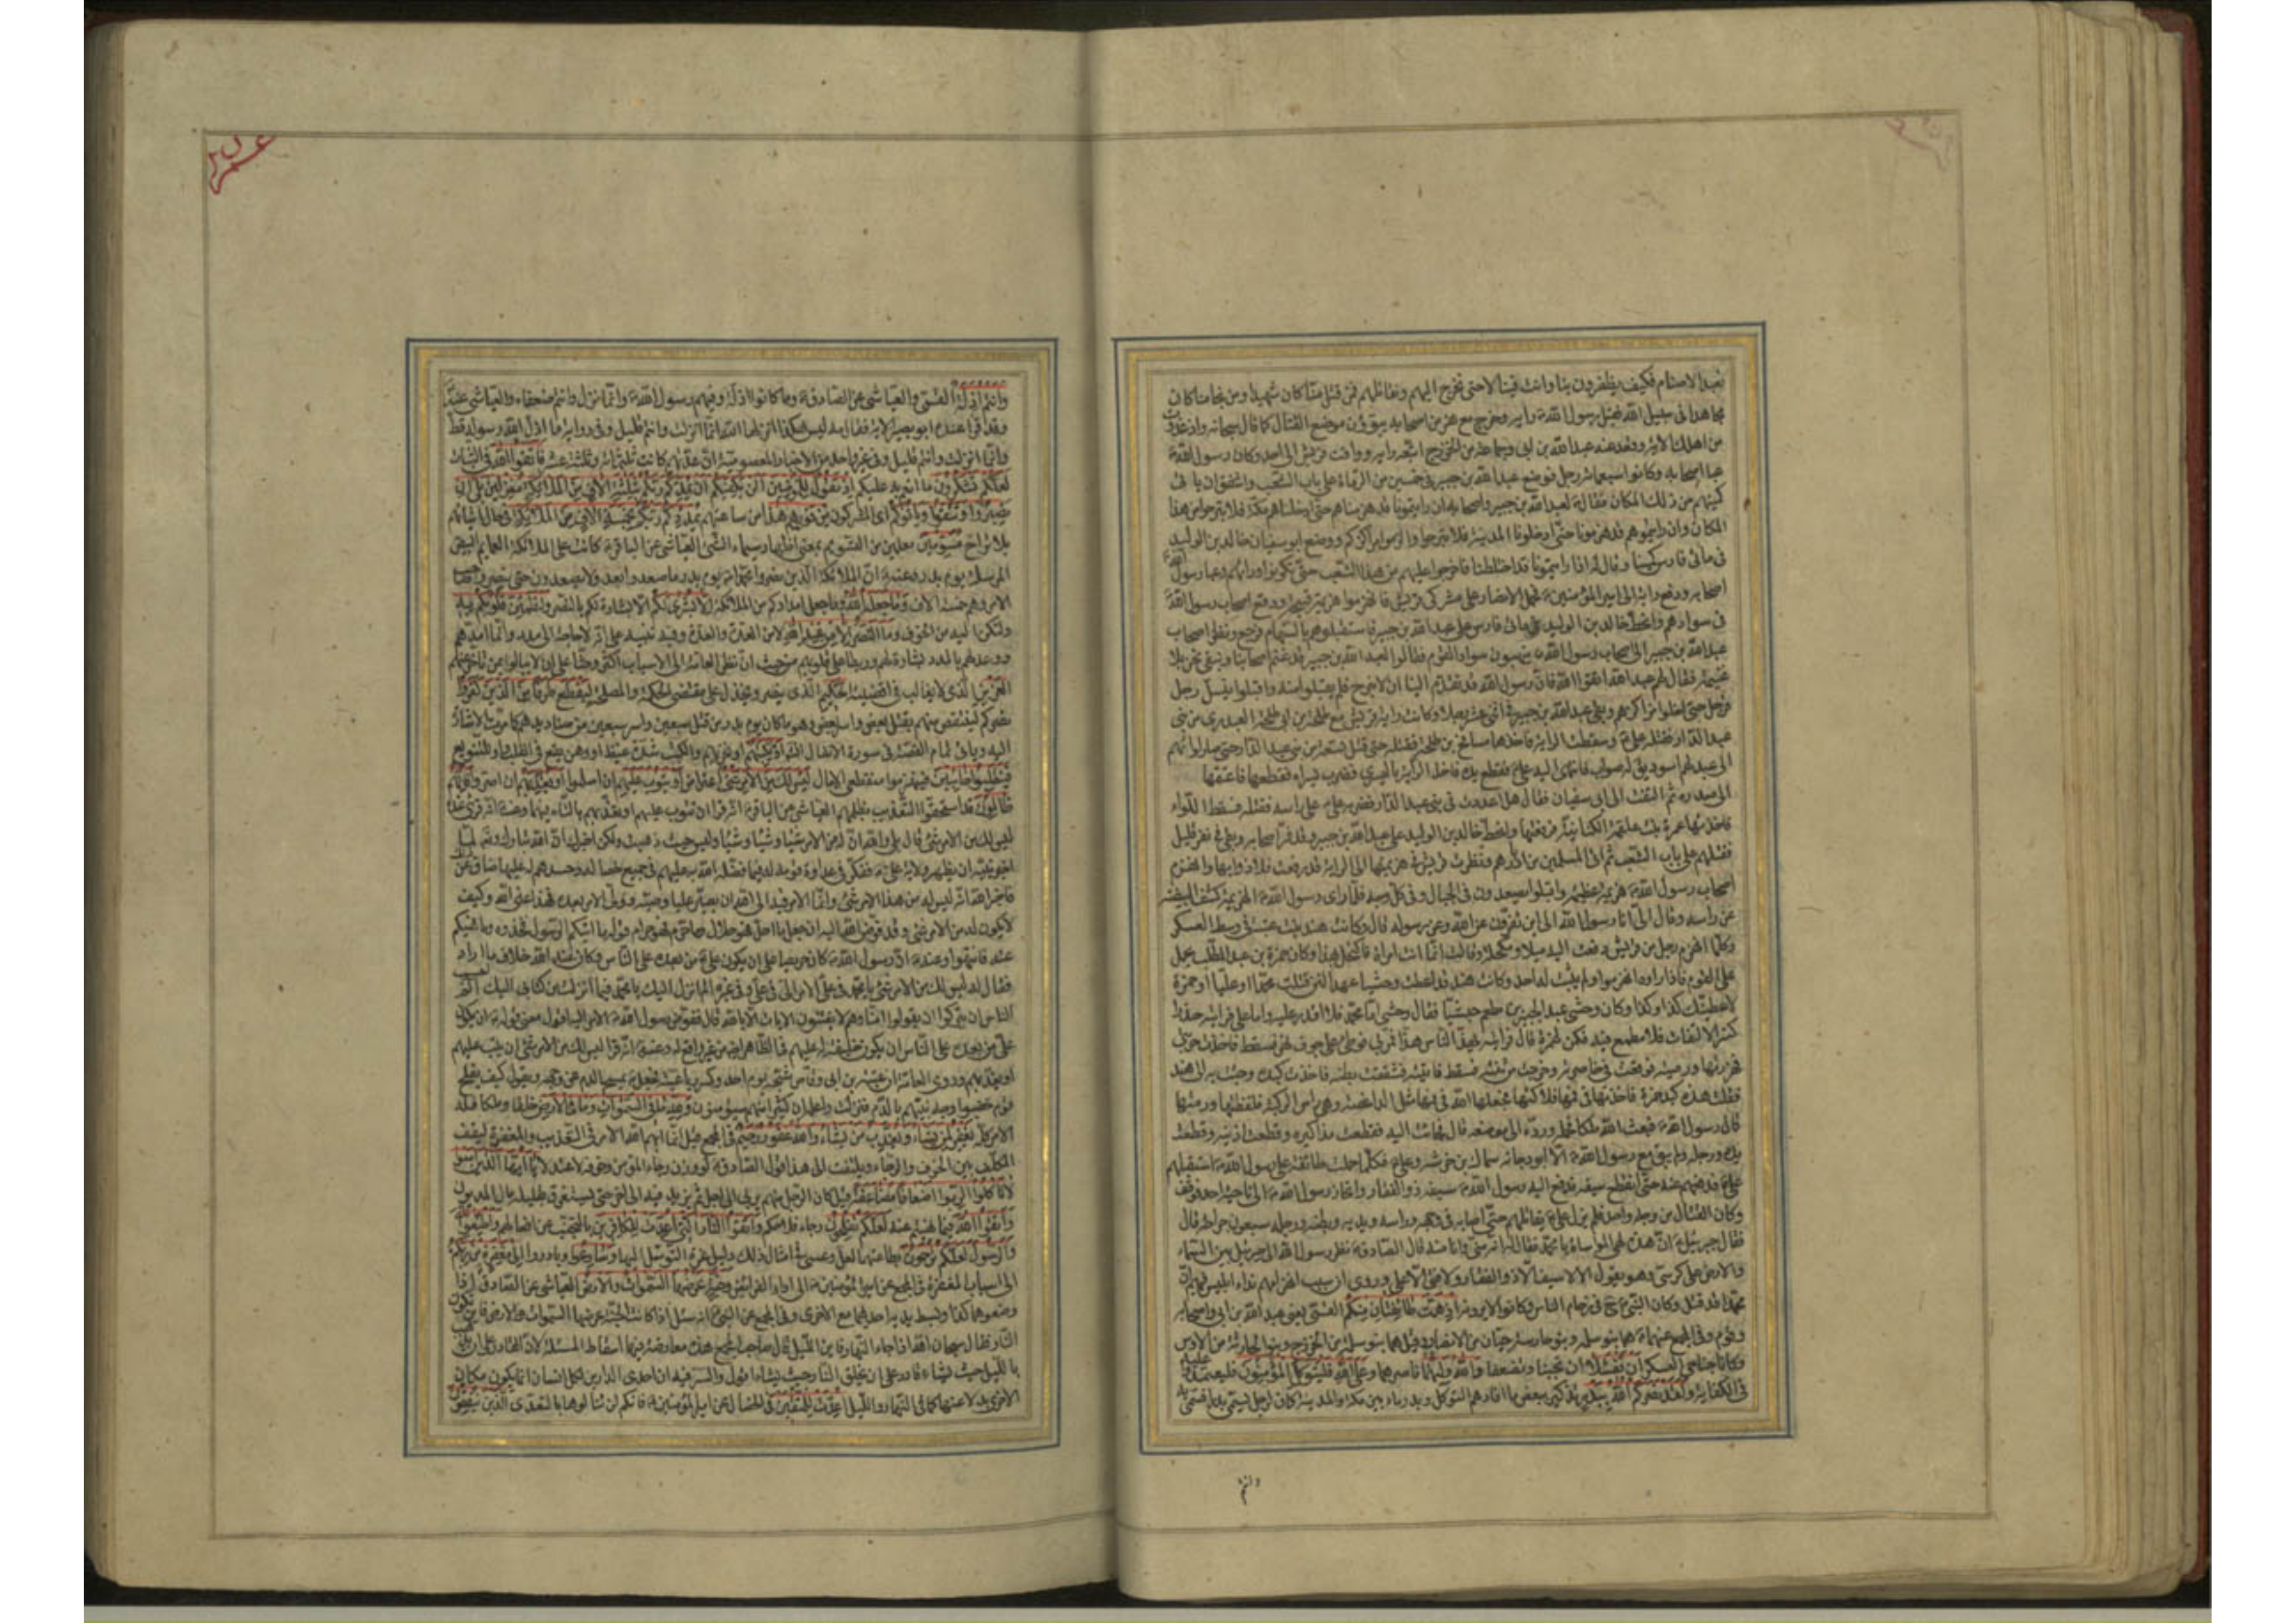 نعبد الاصنام فكيف يظفرون بنا وانت فينا لا حتى نخرج اليهم ونقاتلهم فمن قتل منا كان شهيدا ومن نجا منا كان
مجاهدا فى سبيل الله فقبل رسول الله ص رايه وخرج مع نفر من اصحابه يبتغون موضع القتال كما قال سبحانه واذ غدوت
من اهلك الاية وقعد عنه عبد الله بن ابى وجماعة من الخزرج اتبعوا رايه ووافت قريش الى احد وكان رسول الله ص
عبا اصحابه وكانوا سبعمائة رجل فوضع عبد الله بن جبير فى خمسين من الرماة على باب الشعب واشفق ان ياتى
كمينهم من ذلك المكان فقال ص لعبد الله بن جبير واصحابه ان رايتمونا قد هزمناهم حتى ادخلناهم مكة فلا تبرحوا من هذا
المكان وان رايتموهم قد هزمونا حتى ادخلونا المدينة فلا تبرحوا والزموا مراكزكم ووضع ابو سفيان خالد بن الوليد
فى مائتى فارس كمينا وقال له اذا رايتمونا قد اختلطنا فاخرجوا عليهم من هذا الشعب حتى تكونوا وراءهم وعبا رسول الله ص
اصحابه ودفع الراية الى امير المؤمنين ع فحمل الانصار على مشركى قريش فانهزموا هزيمة قبيحة ووقع اصحاب رسول الله ص
فى سوادهم وانحط خالد بن الوليد فى مائتى فارس على عبد الله بن جبير فاستقبلوهم بالسهام فرجع ونظر اصحاب
عبد الله بن جبير الى اصحاب رسول الله ص ينهبون سواد القوم فقالوا لعبد الله بن جبير قد غنم اصحابنا ونبقى نحن بلا
غنيمة فقال لهم عبد الله اتقوا الله فان رسول الله قد تقدم الينا ان لا نبرح فلم يقبلوا منه واقبلوا ينسل رجل
فرجل حتى اخلوا مراكزهم وبقى عبد الله بن جبير فى اثنى عشر رجلا وكانت راية قريش مع طلحة بن ابى طلحة العبدرى من بنى
عبد الدار فقتله على ع وسقطت الراية فاخذها مسافع بن طلحة فقتله حتى قتل تسعة من بنى عبد الدار حتى صار لوائهم
الى عبد لهم اسود يقال له صواب فانتهى اليه على ع فقطع يده فاخذ الراية باليسرى فضرب يسراه فقطعها فاعتنقها
الى صدره ثم التفت الى ابى سفيان فقال هل اعذرت فى بنى عبد الدار فضربه على ع على راسه فقتله فسقط اللواء
فاخذتها عمرة بنت علقمة الكنانية فرفعتها وانحط خالد بن الوليد على عبد الله بن جبير وقد فر اصحابه وبقى فى نفر قليل
فقتلهم على باب الشعب ثم اتى المسلمين من ادبارهم ونظرت قريش فى هزيمتها الى الراية قد رفعت فلاذوا بها وانهزم
اصحاب رسول الله ص هزيمة عظيمة واقبلوا يصعدون فى الجبال وفى كل وجه فلما راى رسول الله ص الهزيمة كشف البيضة
عن راسه وقال الى انا رسول الله الى اين تفرون عن الله وعن رسوله قال وكانت هند بنت عتبة فى وسط العسكر
وكلما انهزم رجل من قريش دفعت اليه ميلا ومكحلة وقالت انما انت امراة فاكتحل بهذا وكان حمزة بن عبد المطلب يحمل
على القوم فاذا راوه انهزموا ولم يثبت له احد وكانت هند قد اعطت وحشيا عهدا لئن قتلت محمدا او عليا او حمزة
لاعطينك كذا وكذا وكان وحشى عبدا لجبير بن مطعم حبشيا فقال وحشى اما محمد فلا اقدر عليه واما على فرايته حذرا
كثير الالتفات فلا مطمع فيه فكمن لحمزة قال فرايته يهد الناس هدا فمر بى فوطئ على جرف نهر فسقط فاخذت حربتى
فهززتها ورميته فوقعت فى خاصرته وخرجت من ثنته فسقط فاتيته فشققت بطنه فاخذت كبده وجئت به الى هند
فقلت هذه كبد حمزة فاخذتها فى فمها فلاكتها فجعلها الله فى فمها مثل الداغصة وهى راس الركبة فلفظتها ورمت بها
قال رسول الله ص فبعث الله ملكا فحمله ورده الى موضعه قال فجاءت اليه فقطعت مذاكيره وقطعت اذنيه وقطعت
يده ورجله ولم يبق مع رسول الله ص الا ابو دجانة سماك بن خرشة وعلى ع فكلما حملت طائفة على رسول الله ص استقبلهم
على ع فدفعهم عنه حتى انقطع سيفه فدفع اليه رسول الله ص سيفه ذو الفقار وانحاز رسول الله ص الى ناحية احد فوقف
وكان القتال من وجه واحد فلم يزل على ع يقاتلهم حتى اصابه فى وجهه وراسه ويديه وبطنه ورجليه سبعون جراحة قال
فقال جبرئيل ع ان هذه لهى المواساة يا محمد فقال له انه منى وانا منه قال الصادق ع نظر رسول الله الى جبرئيل بين السماء
والارض على كرسى وهو يقول لا سيف الا ذو الفقار ولا فتى الا على وروى ان سبب انهزامهم نداء ابليس فيهم ان
محمدا قد قتل وكان النبى ص فى زحام الناس وكانوا لا يرونه اذ همت طائفتان منكم القمى يعنى عبد الله بن ابى واصحابه
وقوم وفى المجمع عنهما ع هما بنو سلمة وبنو حارثة حيان من الانصار وقيل هما بنو سلمة من الخزرج وبنو الحارثة من الاوس
وكانا جناحى العسكر ان تفشلا ان تجبنا وتضعفا والله وليهما ناصرهما وعلى الله فليتوكل المؤمنون فليعتمدوا عليه
فى الكفاية ولقد نصركم الله ببدر تذكير ببعض ما افادهم التوكل وبدر ماء بين مكة والمدينة كان لرجل يسمى بدرا فسمى به
وانتم
وانتم اذلة القمى والعياشى عن الصادق ع وما كانوا اذلة وفيهم رسول الله ص وانما نزل وانتم ضعفاء والعياشى عنه ع
وقد قرا عنده ابو بصير الاية فقال مه ليس هكذا انزلها الله انما انزلت وانتم قليل وفى رواية ما اذل الله رسوله قط
وانما انزلت وانتم قليل وفى غير واحد من الاخبار المعصومية ان عدتهم كانت ثلثمائة وثلثة عشر فاتقوا الله فى الثبات
لعلكم تشكرون ما انعم به عليكم اذ تقول للمؤمنين الن يكفيكم ان يمدكم ربكم بثلثة الاف من الملائكة منزلين بلى ان
تصبروا وتتقوا وياتوكم اى المشركون من فورهم هذا من ساعتهم يمددكم ربكم بخمسة الاف من الملائكة فى حال اتيانهم
بلا تراخ مسومين معلمين من التسويم بمعنى اظهار سيماء الشئ العياشى عن الباقر ع كانت على الملائكة العمايم البيض
المرسلة يوم بدر وعنه ع ان الملائكة الذين نصروا محمدا ص يوم بدر ما صعدوا بعد ولا يصعدون حتى ينصروا صاحب
الامر وهم خمسة الاف وما جعله الله وما جعل امدادكم من الملائكة الا بشرى لكم الا بشارة لكم بالنصر ولتطمئن قلوبكم به
ولتسكن اليه من الخوف وما النصر الا من عند الله لا من العدة والعدد وفيه تنبيه على انه لا حاجة الى مدد وانما امدهم
ووعدهم بالمدد بشارة لهم وربطا على قلوبهم من حيث ان نظر العامة الى الاسباب اكثر وحثا على ان لا يبالوا بمن تاخر عنهم
العزيز الذى لا يغالب فى اقضيته الحكيم الذى ينصر ويخذل على مقتضى الحكمة والمصلحة ليقطع طرفا من الذين كفروا
نصركم لينتقص منهم بقتل بعض واسر بعض وهو ما كان يوم بدر من قتل سبعين واسر سبعين من صناديدهم كما مرت الاشارة
اليه وياتى تمام القصة فى سورة الانفال ان شاء الله او يكبتهم او يخزيهم والكبت شدة غيظ او وهن يقع فى القلب او للتنويع
فينقلبوا خائبين فينهزموا منقطعى الامال ليس لك من الامر شئ اعتراض او يتوب عليهم ان اسلموا او يعذبهم ان اصروا فانهم
ظالمون قد استحقوا التعذيب بظلمهم العياشى عن الباقر ع انه قرا ان تتوب عليهم او تعذبهم بالتاء فيهما وعنه ع انه قرئ عنده
ليس لك من الامر شئ قال بلى والله ان له من الامر شيئا وشيئا وشيئا وليس حيث ذهبت ولكن اخبرك ان الله تبارك وتعالى لما
اخبر نبيه ان يظهر ولاية على ع ففكر فى عداوة قومه له فيما فضله الله به عليهم فى جميع خصاله وحسدهم له عليها ضاق عن ذلك
فاخبر الله انه ليس له من هذا الامر شئ وانما الامر فيه الى الله ان يصير عليا وصيه وولى الامر بعده فهذا عنى الله وكيف
لا يكون له من الامر شئ وقد فوض الله اليه ان جعل ما احل فهو حلال وما حرم فهو حرام قوله ما اتيكم الرسول فخذوه وما نهيكم
عنه فانتهوا وعنه ع ان رسول الله ص كان حريصا على ان يكون على ع من بعده على الناس وكان عند الله خلاف ما اراد
فقال له ليس لك من الامر شئ يا محمد فى على الامر الى فى على وفى غيره الم انزل اليك يا محمد فيما انزلت من كتابى اليك الم احسب
الناس ان يتركوا ان يقولوا امنا وهم لا يفتنون الايات قال ففوض رسول الله ص الامر اليه اقول معنى قوله ع ان يكون
على من بعده على الناس ان يكون خليفة له عليهم فى الظاهر ايضا من غير دافع له وعنه ع انه قرا ليس لك من الامر شئ ان يتب عليهم
او يعذبهم وروى العامة ان عتبة بن ابى وقاص شجه يوم احد وكسر رباعيته فجعل يمسح الدم عن وجهه ويقول كيف يفلح
قوم خضبوا وجه نبيهم بالدم فنزلت واعلم ان كثيرا منهم سيؤمنون ولله ما فى السموات وما فى الارض خلقا وملكا فله
الامر كله يغفر لمن يشاء ويعذب من يشاء والله غفور رحيم فى المجمع قيل انما ابهم الله الامر فى التعذيب والمغفرة ليقف
المكلف بين الخوف والرجاء ويلتفت الى هذا قول الصادق ع لو وزن رجاء المؤمن وخوفه لاعتدلا يا ايها الذين امنوا
لا تاكلوا الربوا اضعافا مضاعفة قيل كان الرجل منهم يربى الى اجل ثم يزيد فيه الى اخر حتى يستغرق بقليله مال المديون
واتقوا الله فيما نهيتم عنه لعلكم تفلحون رجاء فلاحكم واتقوا النار التى اعدت للكافرين بالتجنب عن افعالهم واطيعوا الله
والرسول لعلكم ترحمون بطاعتهما لعل وعسى فى امثال ذلك دليل عزة التوصل اليها وسارعوا وبادروا الى مغفرة من ربكم
الى اسباب المغفرة فى المجمع عن امير المؤمنين ع الى اداء الفرائض وجنة عرضها السموات والارض العياشى عن الصادق ع اذا
وضعوهما كذا وبسط يديه احديهما مع الاخرى وفى المجمع عن النبى ص انه سئل اذا كانت الجنة عرضها السموات والارض فاين تكون
النار فقال سبحان الله اذا جاء النهار فاين الليل قال صاحب المجمع هذه معارضة فيها اسقاط المسئلة لان القادر على ان يذهب
بالليل حيث يشاء قادر على ان يخلق النار حيث يشاء اقول والسر فيه ان احدى الدارين لكل انسان انما يكون مكان
الاخرى بدلا عنها كما فى النهار والليل اعدت للمتقين فى الخصال عن امير المؤمنين ع فانكم لن تنالوها الا بالتقوى الذين ينفقون